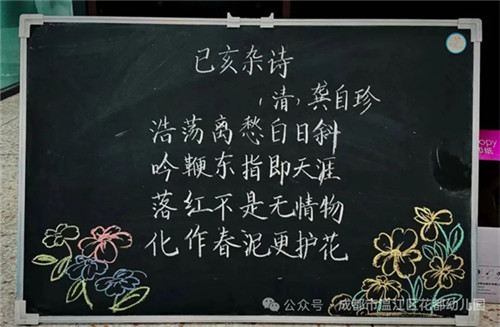 已亥杂诗
(清)龚自珍
浩荡离愁白日斜
吟鞭东指即天涯
落红不是无情物
化作春泥更护花
公众号·成都市温江区花都幼儿园